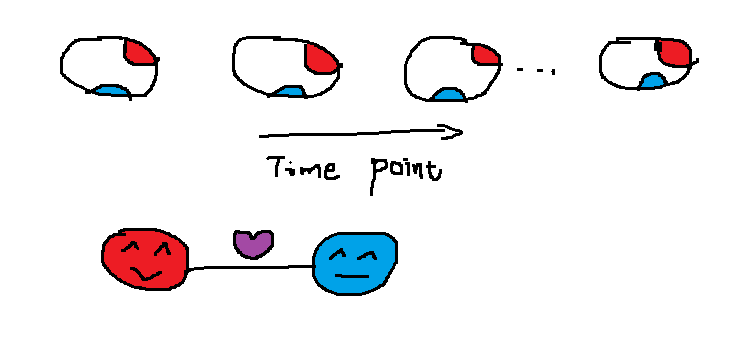 Time point